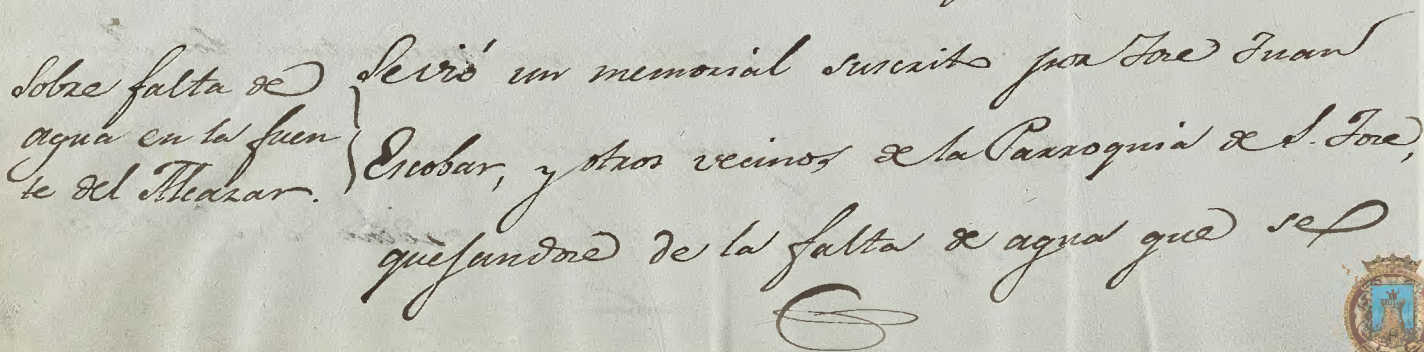 Sobre falta de
agua en la fuen
te del Alcazar.
Se vió un memorial suscrito por Jose Juan
Escobar, y otros vecinos de la Parroquia de S. Jose,
quejandose de la falta de agua que se